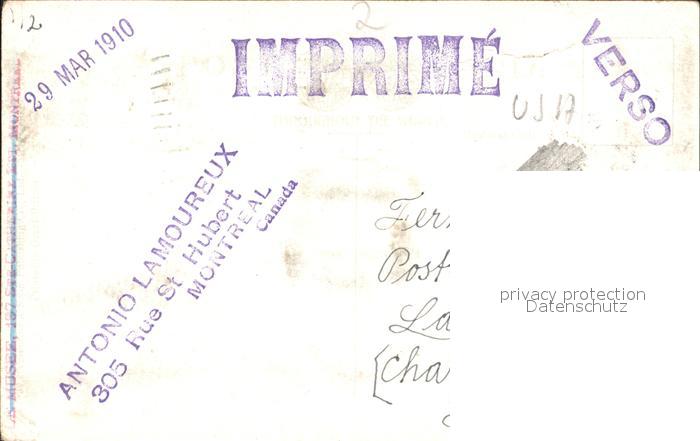 12
2
29 MAR 1910
IMPRIMÉ
VERSO
USA
ANTONIO LAMOUREUX
305 Rue St Hubert
MONTREAL
Canada
Fer
Post
La
(Cha
privacy protection
Datenschutz